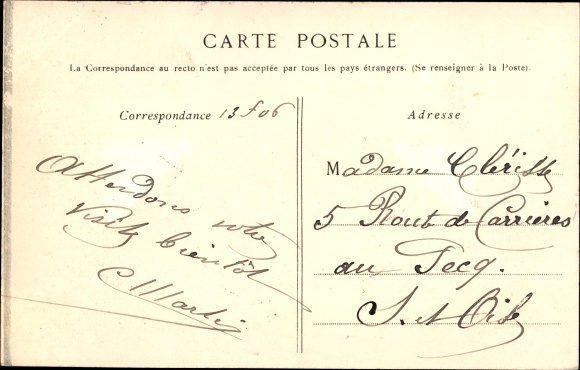 CARTE POSTALE
La Correspondance au recto n'est pas acceptée par tous les pays étrangers. (Se renseigner à la Poste).
Correspondance 13 f 06
Attendons votre
visite bientôt
C Martin
Adresse
Madame Clérisse
5 Route de Carrières
au Pecq.
S. et Oise